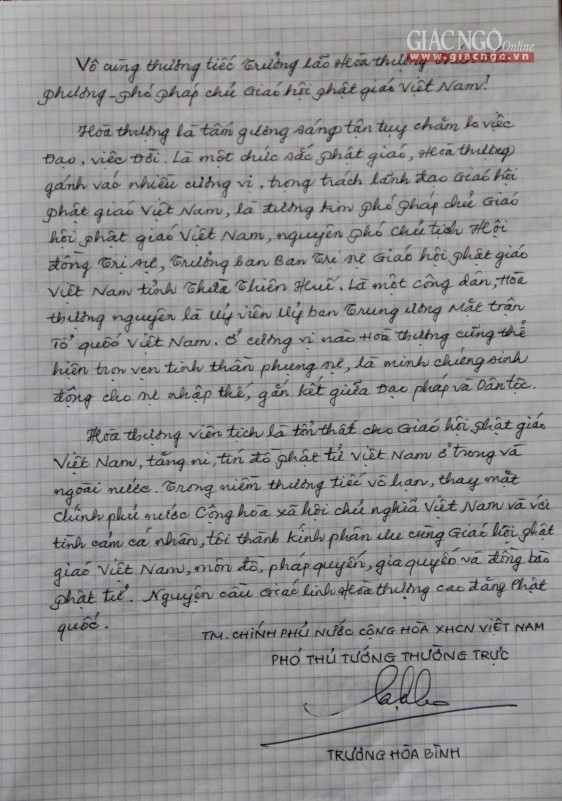 GIÁC NGỘ Online
www.giacngo.vn
Vô cùng thương tiếc Trưởng lão Hòa thượng
phương - phó pháp chủ Giáo hội phật giáo Việt Nam!
Hòa thượng là tấm gương sáng tận tụy chăm lo việc
Đạo, việc Đời. Là một chức sắc phật giáo, Hòa thượng
gánh vác nhiều cương vị, trọng trách lãnh đạo Giáo hội
phật giáo Việt Nam, là đương kim phó pháp chủ Giáo
hội phật giáo Việt Nam, nguyên phó chủ tịch Hội
đồng Trị sự, Trưởng ban Ban Trị sự Giáo hội phật giáo
Việt Nam tỉnh Thừa Thiên Huế. Là một công dân, Hòa
thượng nguyên là Uỷ viên Uỷ ban Trung ương Mặt trận
Tổ quốc Việt Nam. Ở cương vị nào Hoà thượng cũng thể
hiện trọn vẹn tinh thần phụng sự, là minh chứng sinh
động cho sự nhập thế, gắn kết giữa Đạo pháp và Dân tộc.
Hòa thượng viên tịch là tổn thất cho Giáo hội phật giáo
Việt Nam, tăng ni, tín đồ phật tử Việt Nam ở trong và
ngoài nước. Trong niềm thương tiếc vô hạn, thay mặt
Chính phủ nước Cộng hòa xã hội chủ nghĩa Việt Nam và với
tình cảm cá nhân, tôi thành kính phân ưu cùng Giáo hội phật
giáo Việt Nam, môn đồ, pháp quyến, gia quyến và đồng bào
phật tử. Nguyện cầu Giác linh Hòa thượng cao đăng Phật
quốc.
TM. CHÍNH PHỦ NƯỚC CỘNG HÒA XHCN VIỆT NAM
PHÓ THỦ TƯỚNG THƯỜNG TRỰC
TRƯƠNG HÒA BÌNH